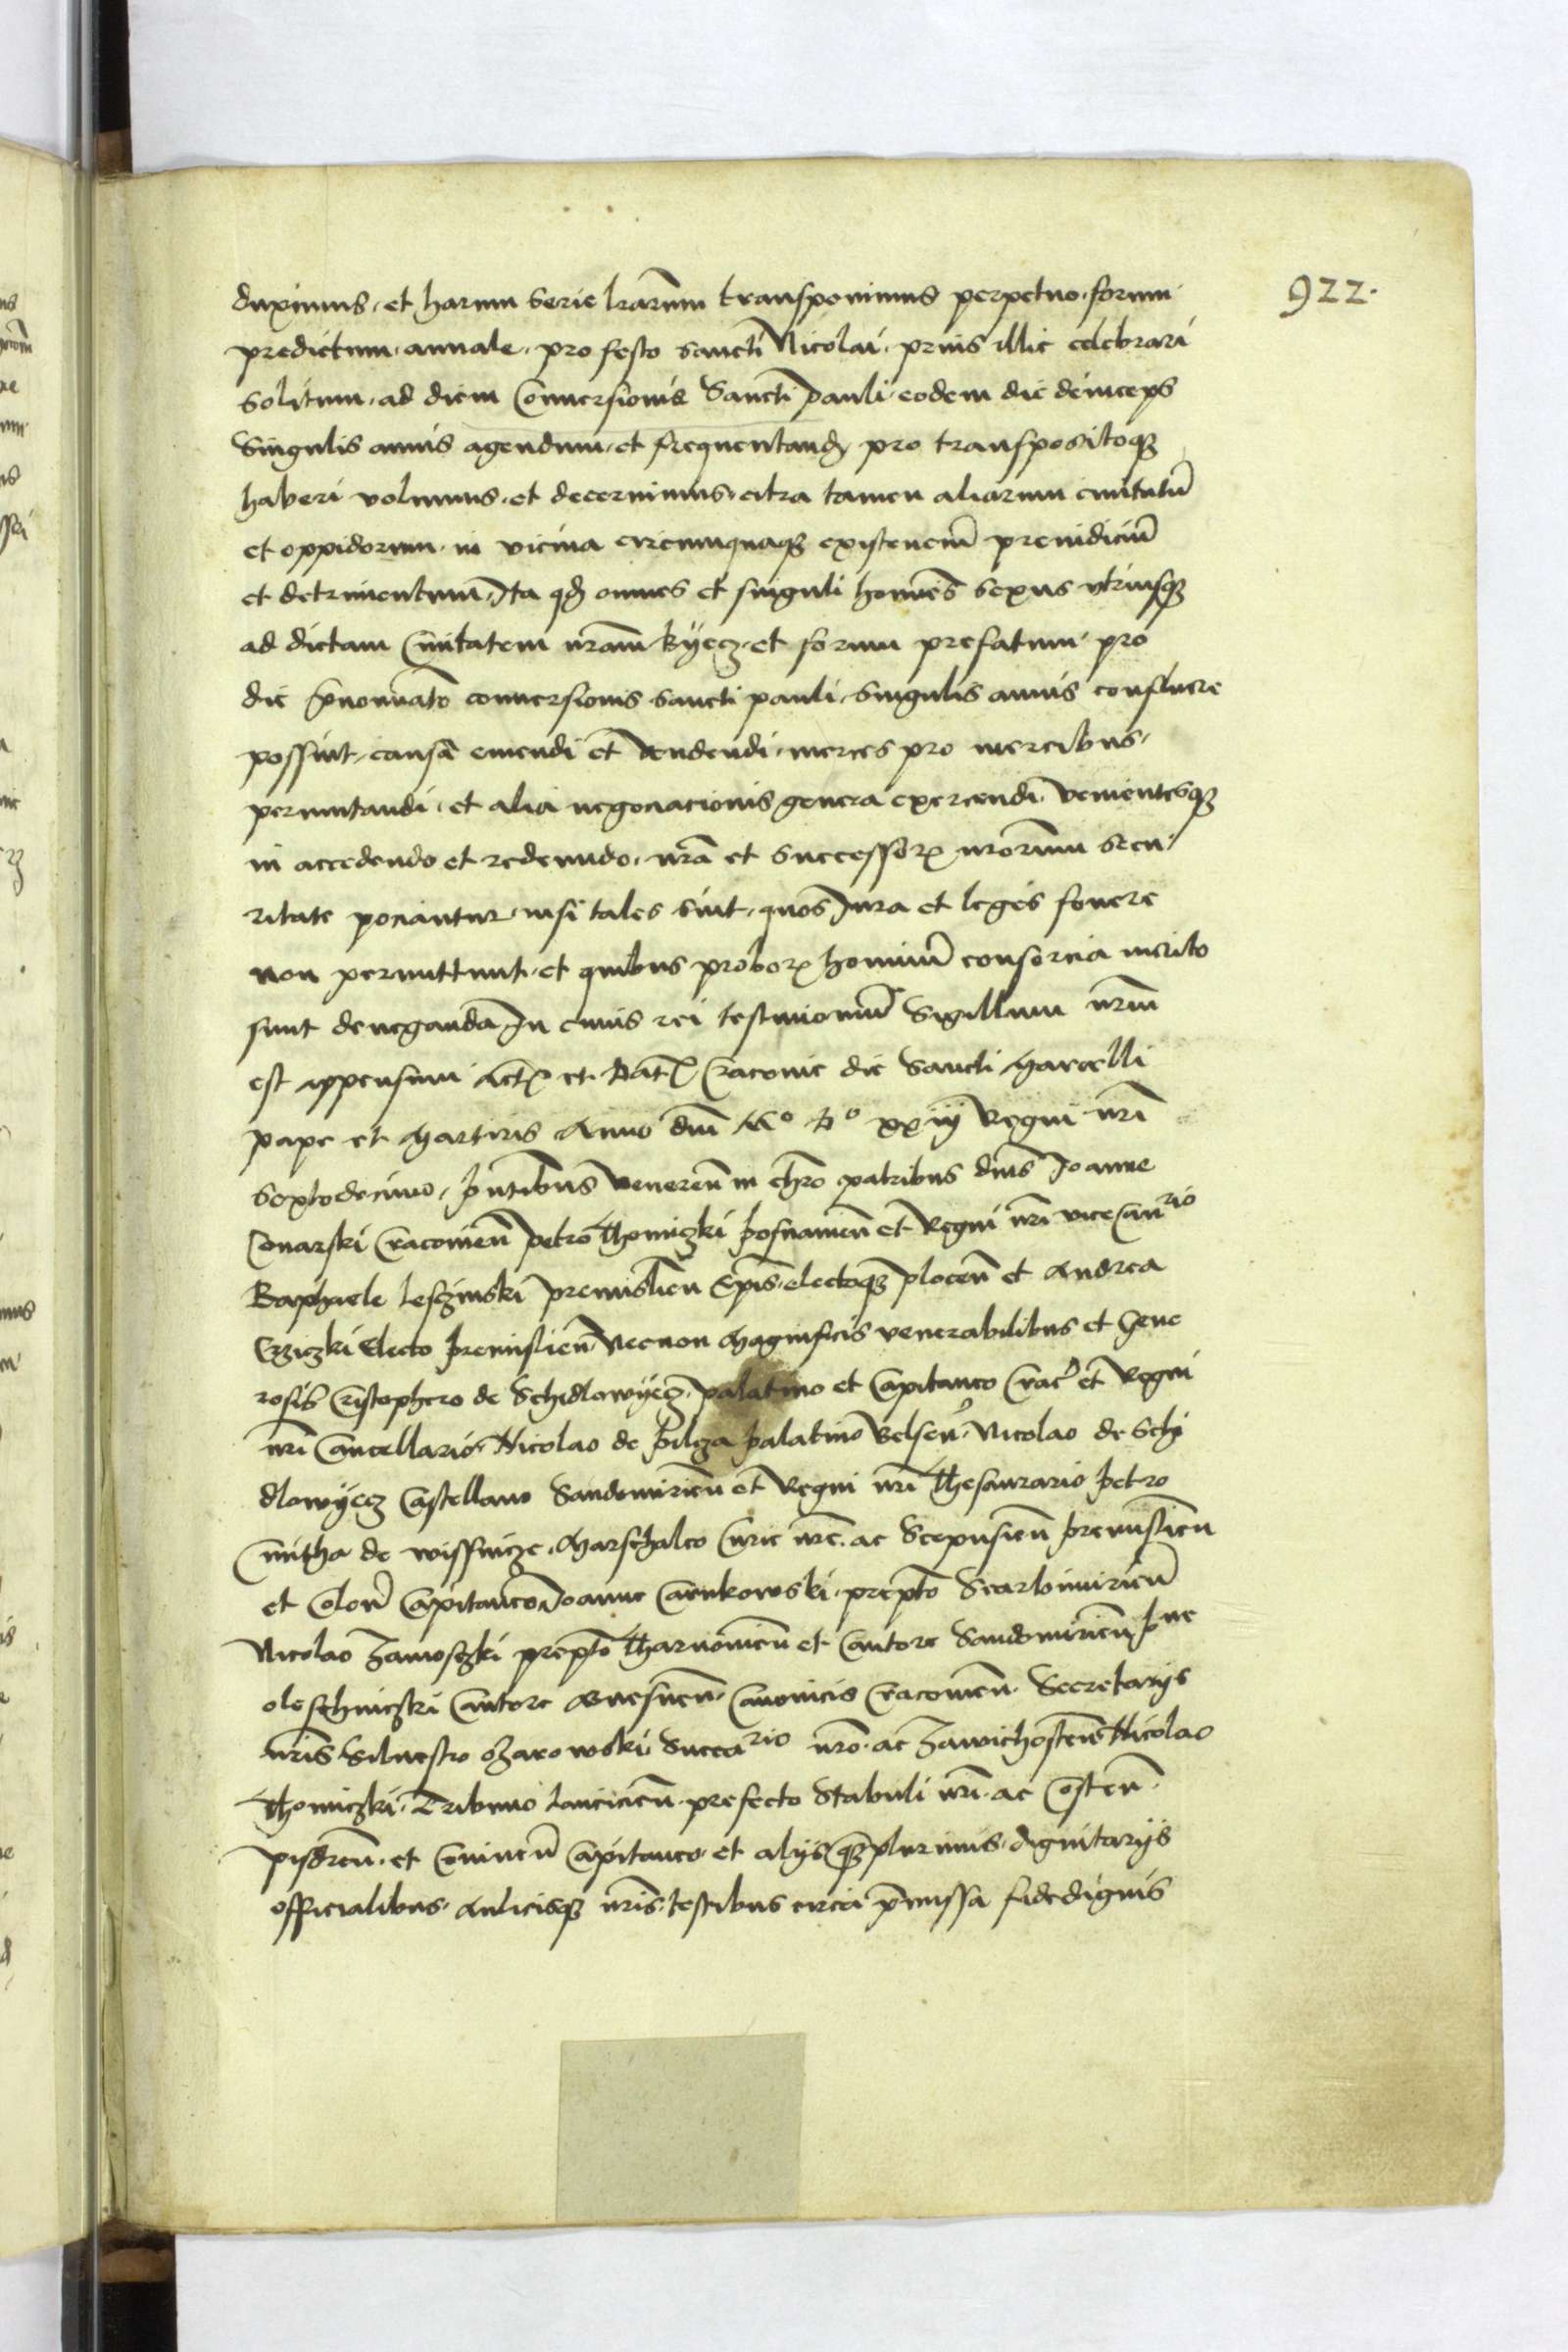 922.
duximus. et harum serie lrarum transponimus perpetuo. forum
predictum. annale. pro festo sancti Nicolai. prius illic celebrari
solitum. ad diem Conuersionis Sancti Pauli. eodem die deinceps
singulis annis agendum. et frequentand. pro transpositoq3
haberi volumus. et decernimus. citra tamen aliarum ciuitatũ
et oppidorum. in vicina circumquaq3 existenciũ preiudiciũ
et detrimentum. Ita qd omnes et singuli hoĩes sexus vtriusq3
ad dictam Ciuitatem nram Byecz. et forum prefatum. pro
die p̃noĩato conuersionis sancti pauli. singulis annis confluere
possint. causa emendi et vendendi. merces pro mercibus.
permutandi. et alia negociacionis genera exercendi. venientesq3
in accedendo et redeundo. nra et successor nrorum secu-
ritate pociantur. nisi tales sint. quos Iura et leges fouere
non permittunt. et quibus probor hominũ consorcia merito
sunt deneganda. In cuius rei testimoniũ Sigillum nrm
est appensum. Act et Dat Cracouie die Sancti Marcelli
pape et Martiris Anno dni Mº Dº xxiij Regni nri
Sextodecimo. pñtibus Veneren in chro patribus dnis Joanne
Conarski Cracouien Petro Thomiczki Posnanien et Regni nri vice Canrio
Raphaele Lesczinski premislien Epis. electoq3 plocen et Andrea
Crziczki Electo Premislien Necnon Magnificis venerabilibus et Gene
rosis Cristophero de Schidlowyecz. palatino et Capitaneo Crac et Regni
nri Cancellario. Nicolao de Pilcza Palatino Belsen. Nicolao de Schi
dlowyecz Castellano Sandomirien et Regni nri Thesaurario Petro
Cmitha de wissnicze. Marschalco Curie nre. ac Scepusien Premislien
et Colon Capitaneo Joanne Carnkowski. prepto Scarbimirien
Nicolao Zamoszki prepto Tharnouien et Cantore Sandomirien
oleschniczki Cantore Gnesnen. Canonicis Cracouien. Secretarijs
nris Siluestro ozarowski Succario nro. ac Zawichosten Nicolao
Thomiczki. Tribuno Lancicien. prefecto Stabuli nri. ac Costen.
pisdren. et Coninen Capitaneo. et alijs q3plurimis. dignitarijs
officialibus. Aulicisq3 nris. testibus circa p̃missa fidedignis